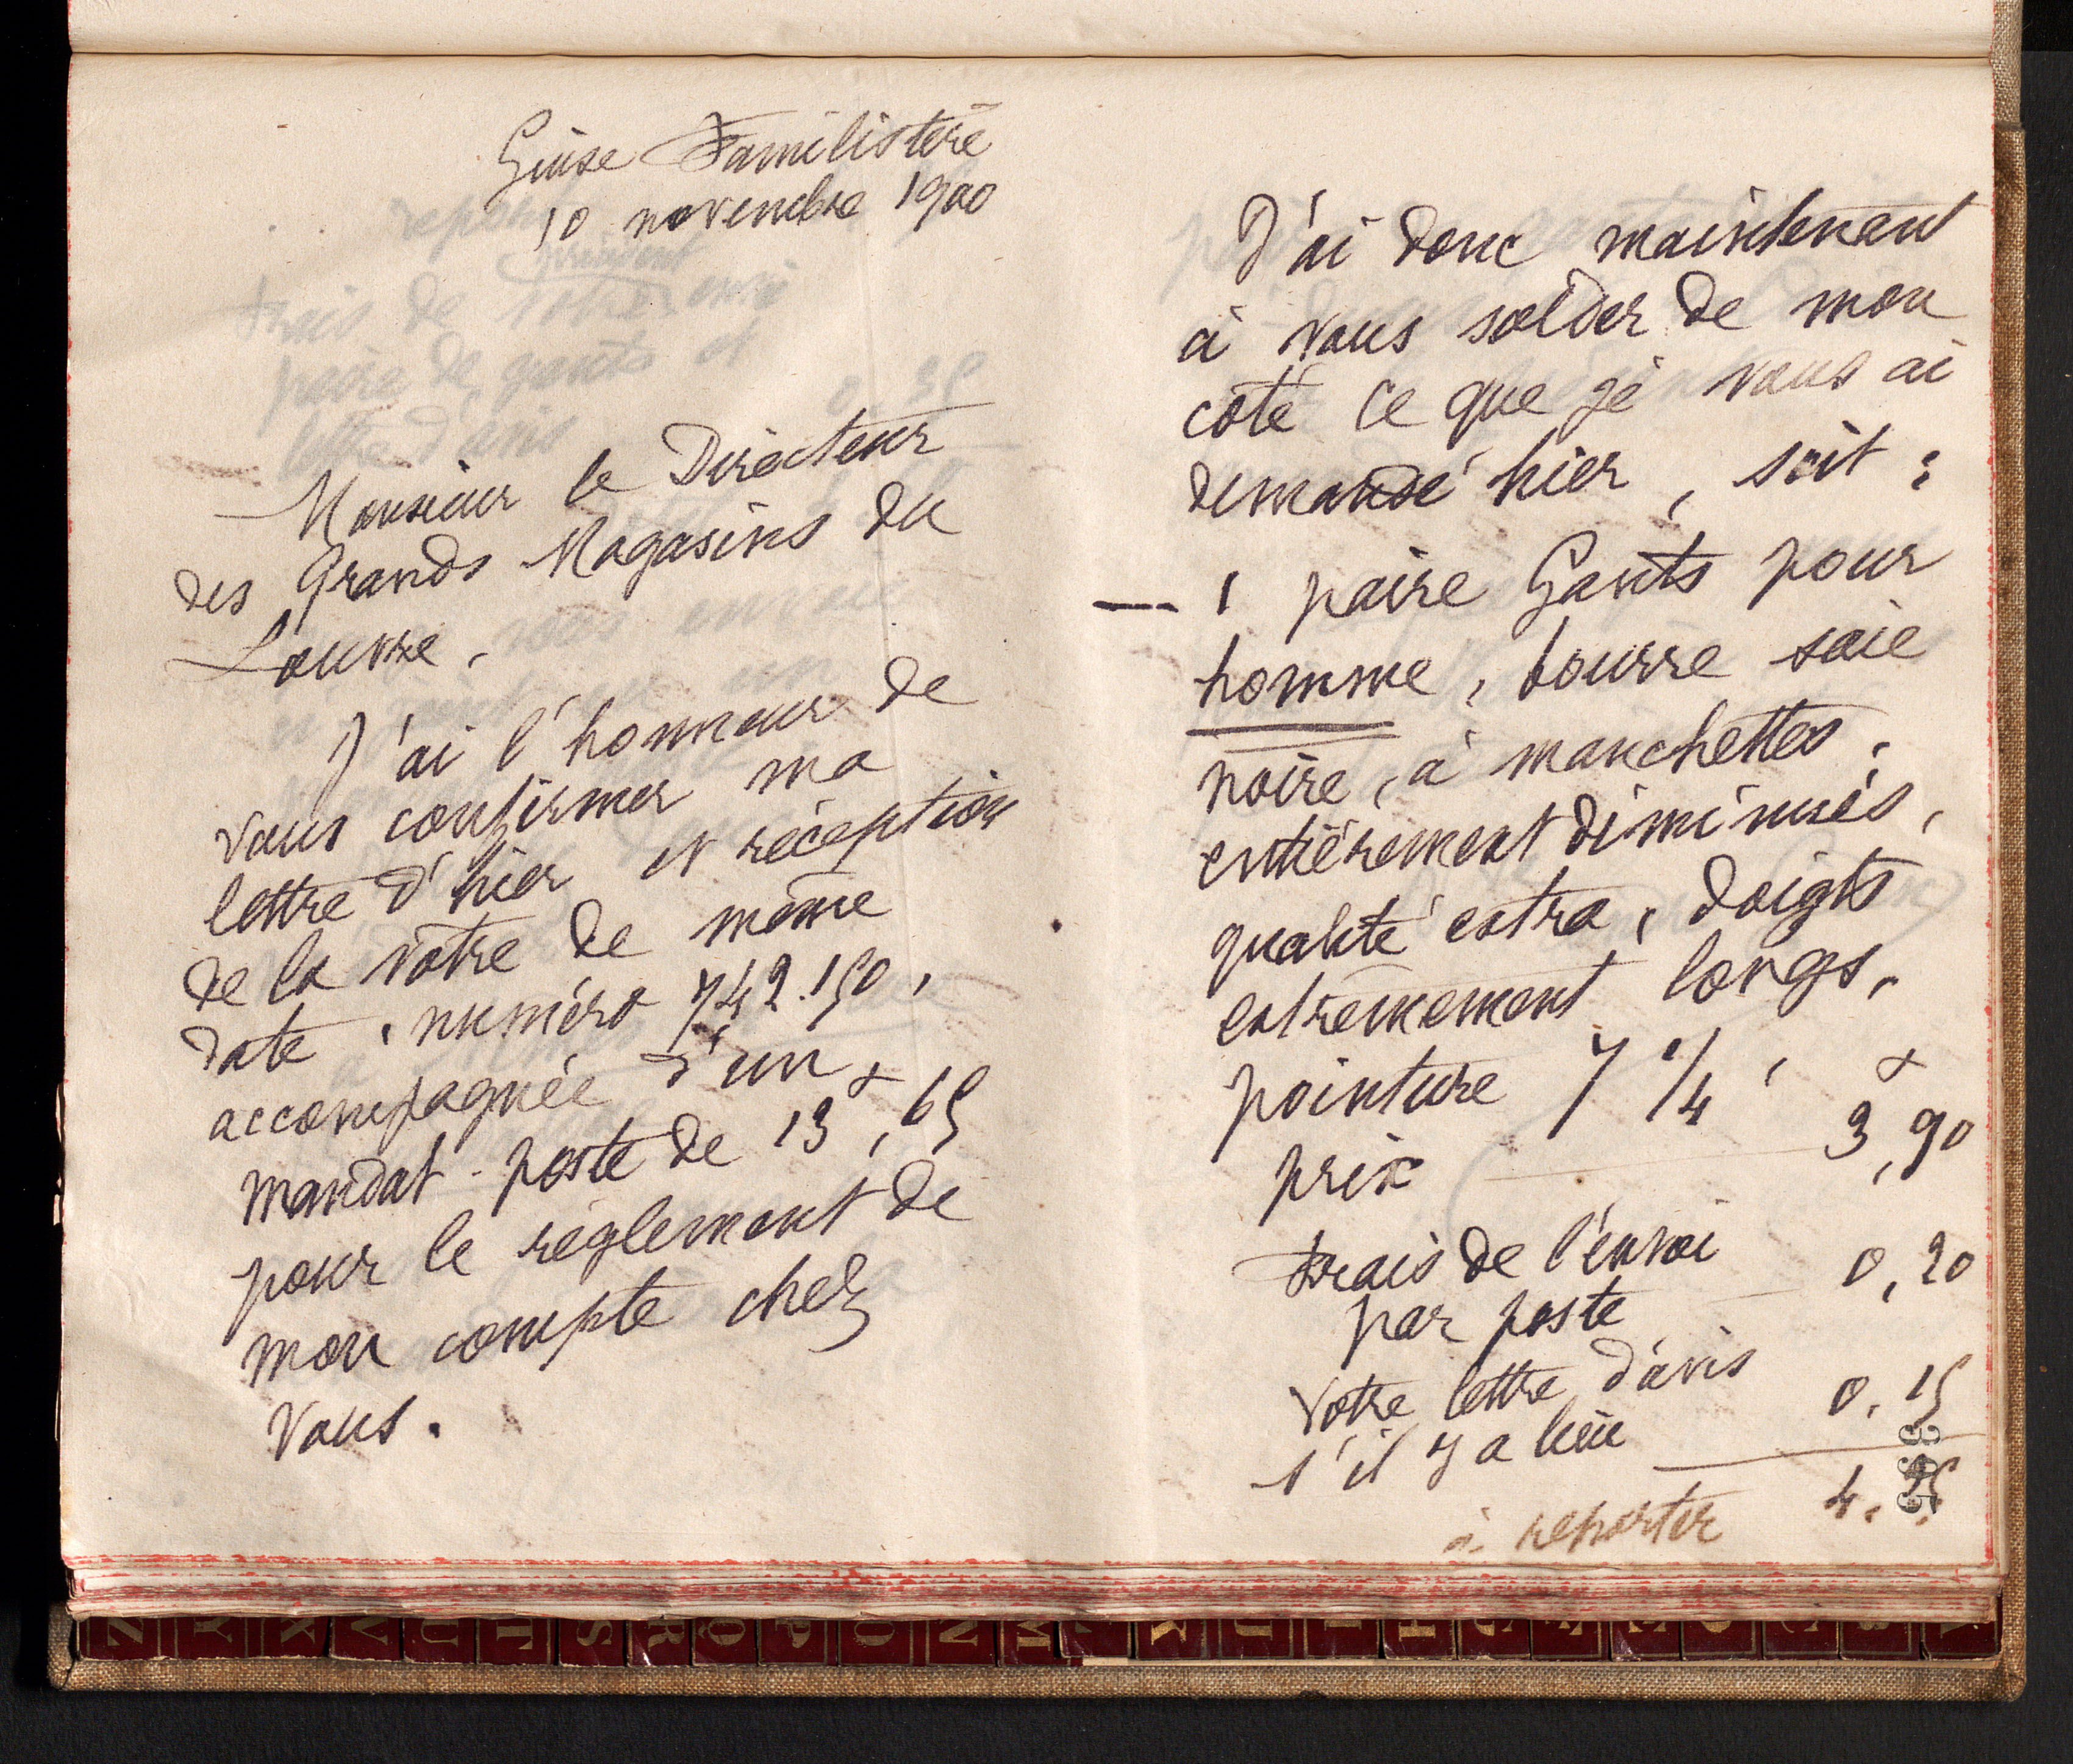 Guise Familistère
10 novembre 1900
Monsieur le Directeur
des Grands Magasins du
Louvre.
J'ai l'honneur de
vous confirmer ma
lettre d'hier et réception
de la vôtre de même
date, numéro 742.150,
accompagnée d'un
mandat-poste de 13f,65
pour le règlement de
mon compte chez
vous.
J'ai donc maintenant
à vous solder de mon
côté ce que je vous ai
demandé hier, soit :
— 1 paire Gants pour
homme, bourre soie
noire, à manchettes,
entièrement diminués,
qualité extra, doigts
extrêmement longs,
pointure 7 1/4,
prix 3f,90
Frais de l'envoi
par poste 0,20
Votre lettre d'avis
s'il y a lieu 0,15
4,25
à reporter
395
Z Y X V U T S R Q P O N M L K J I H G F E D C B A